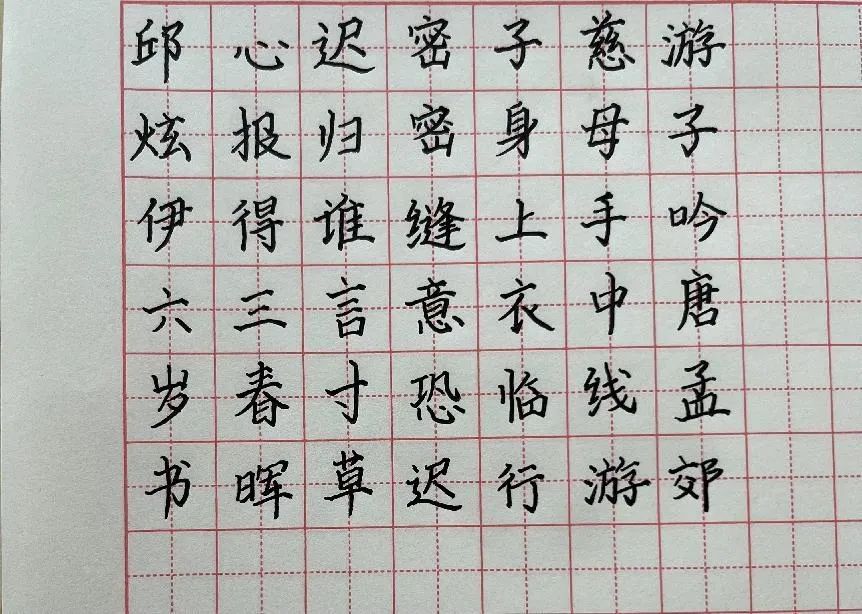 游子吟唐孟郊
慈母手中线游
子身上衣临行
密密缝意恐迟
迟归谁言寸草
心报得三春晖
邱炫伊六岁书